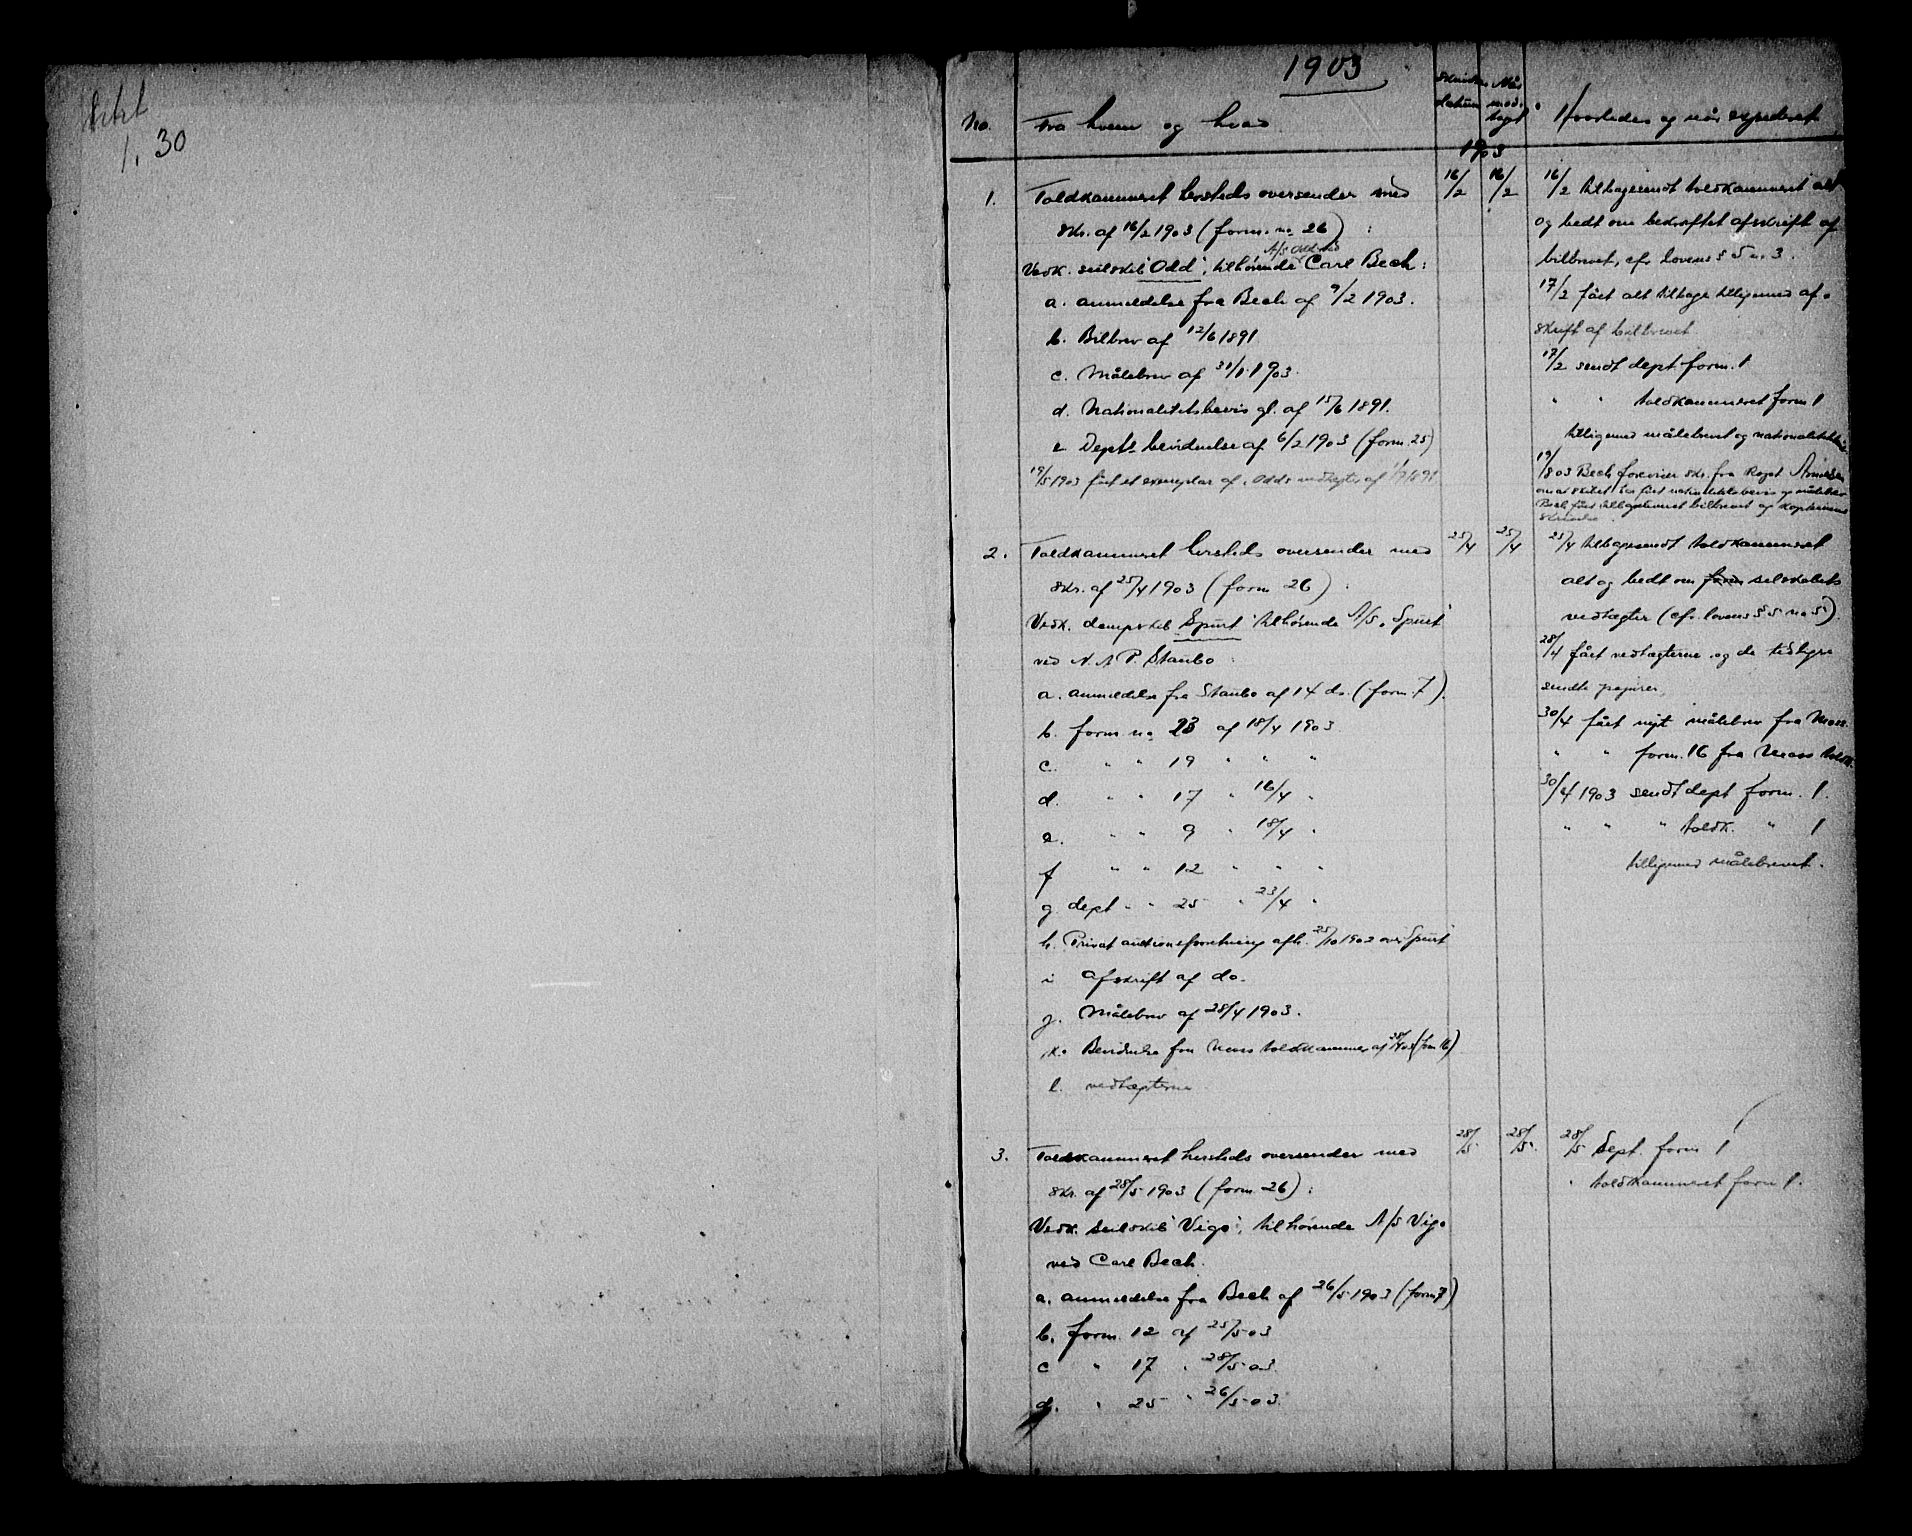 1,30
1903
No.
Fra hvem og hvad
Skrivelsens datum
Når modtagt
Hvorledes og når expederet
1903
1. Toldkammeret hersteds oversender med
skr. af 16/2 1903 (form. no 26) :
A/S Odd ved
Vedk. seilskib "Odd", tilhørende Carl Bech:
a. anmeldelse fra Bech af 9/2 1903.
b. Bilbrev af 12/6 1891
c. Målebrev af 31/1 1903.
d. Nationalitetsbevis gl. af 15/6 1891.
e. Depts bevidnelse af 6/2 1903 (form. 25)
19/5 1903 fået et exemplar af "Odds vedtægter af
16/2
16/2
16/2 tilbagesendt toldkammeret alt
og bedt om bekræftet afskrift af
bilbrevet, cfr. lovens § 5 no 3.
17/2 fået alt tilbage tilligemed af-
skrift af bilbrevet.
17/2 sendt dept form. 1
" " toldkammeret form 1
tilligemed målebrevet og nationalitetsbevis
19/8 03 Bech foreviser skr. fra Regst
om at skibet har fået nationalitetsbevis og målebrev
Bech fået tilbageleveret bilbrevet og
skrivelse.
2. Toldkammeret hersteds oversender med
skr. af 25/4 1903 (form 26) :
Vedk. dampskib "Spurt" tilhørende A/S "Spurt"
ved N. A P. Staubo :
a. anmeldelse fra Staubo af 14 ds. (form. 7).
b. form no 23 af 18/4 1903
c. " " 19 " " "
d. " " 17 " 16/4 "
e. " " 9 " 18/4 "
f " " 12 " " "
g. dept " " 25 " 23/4 "
h. Privat auktionsforretning afh. 25/10 1902 over "Spurt"
i afskrift af do.
j. Målebrev af 28/4 1903.
k. Bevidnelse fra Moss toldkammer af 28/4 03 (form 16)
l. vedtægterne
25/4
25/4
25/4 tilbagesendt toldkammeret
alt og bedt om form selskabets
vedtægter (cfr. lovens § 5 no 5).
28/4 fået vedtægterne og de tidligere
sendte papirer.
30/4 fået nyt målebrev fra Moss.
" " form. 16 fra Moss toldk.
30/4 1903 sendt dept form. 1.
" " " toldk. " 1
tilligemed målebrevet.
3. Toldkammeret hersteds oversender med
skr. af 28/5 1903 (form 26) :
Vedk. seilskib "Vigo", tilhørende A/S Vigo
ved Carl Bech.
a. anmeldelse fra Bech af 26/5 1903 (form 7)
b. form. 12 af 25/5 03
c " 17 " 28/5 03
d. " 25 " 26/5 03
28/5
28/5
28/5 Dept. form 1
" toldkammeret form 1.